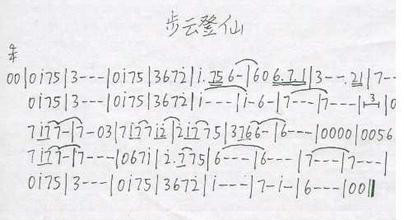 步云登仙
4/4
00|0i75|3---|0i75|3672̇|i.75 6-|60 6.7.1|3--.21|7--
0i75|3---|0i75|3672̇|i---|i-6-|7---|7---|-3-|0
7i77-|7-03|7i77i2̇|2̇i775|3766-|6---|0000|0056
7i77-|7---|067i|2̇.i75|6---|6---|7---|7---|
0i75|3---|0i75|3672̇|i---|7-i-|6---|00‖